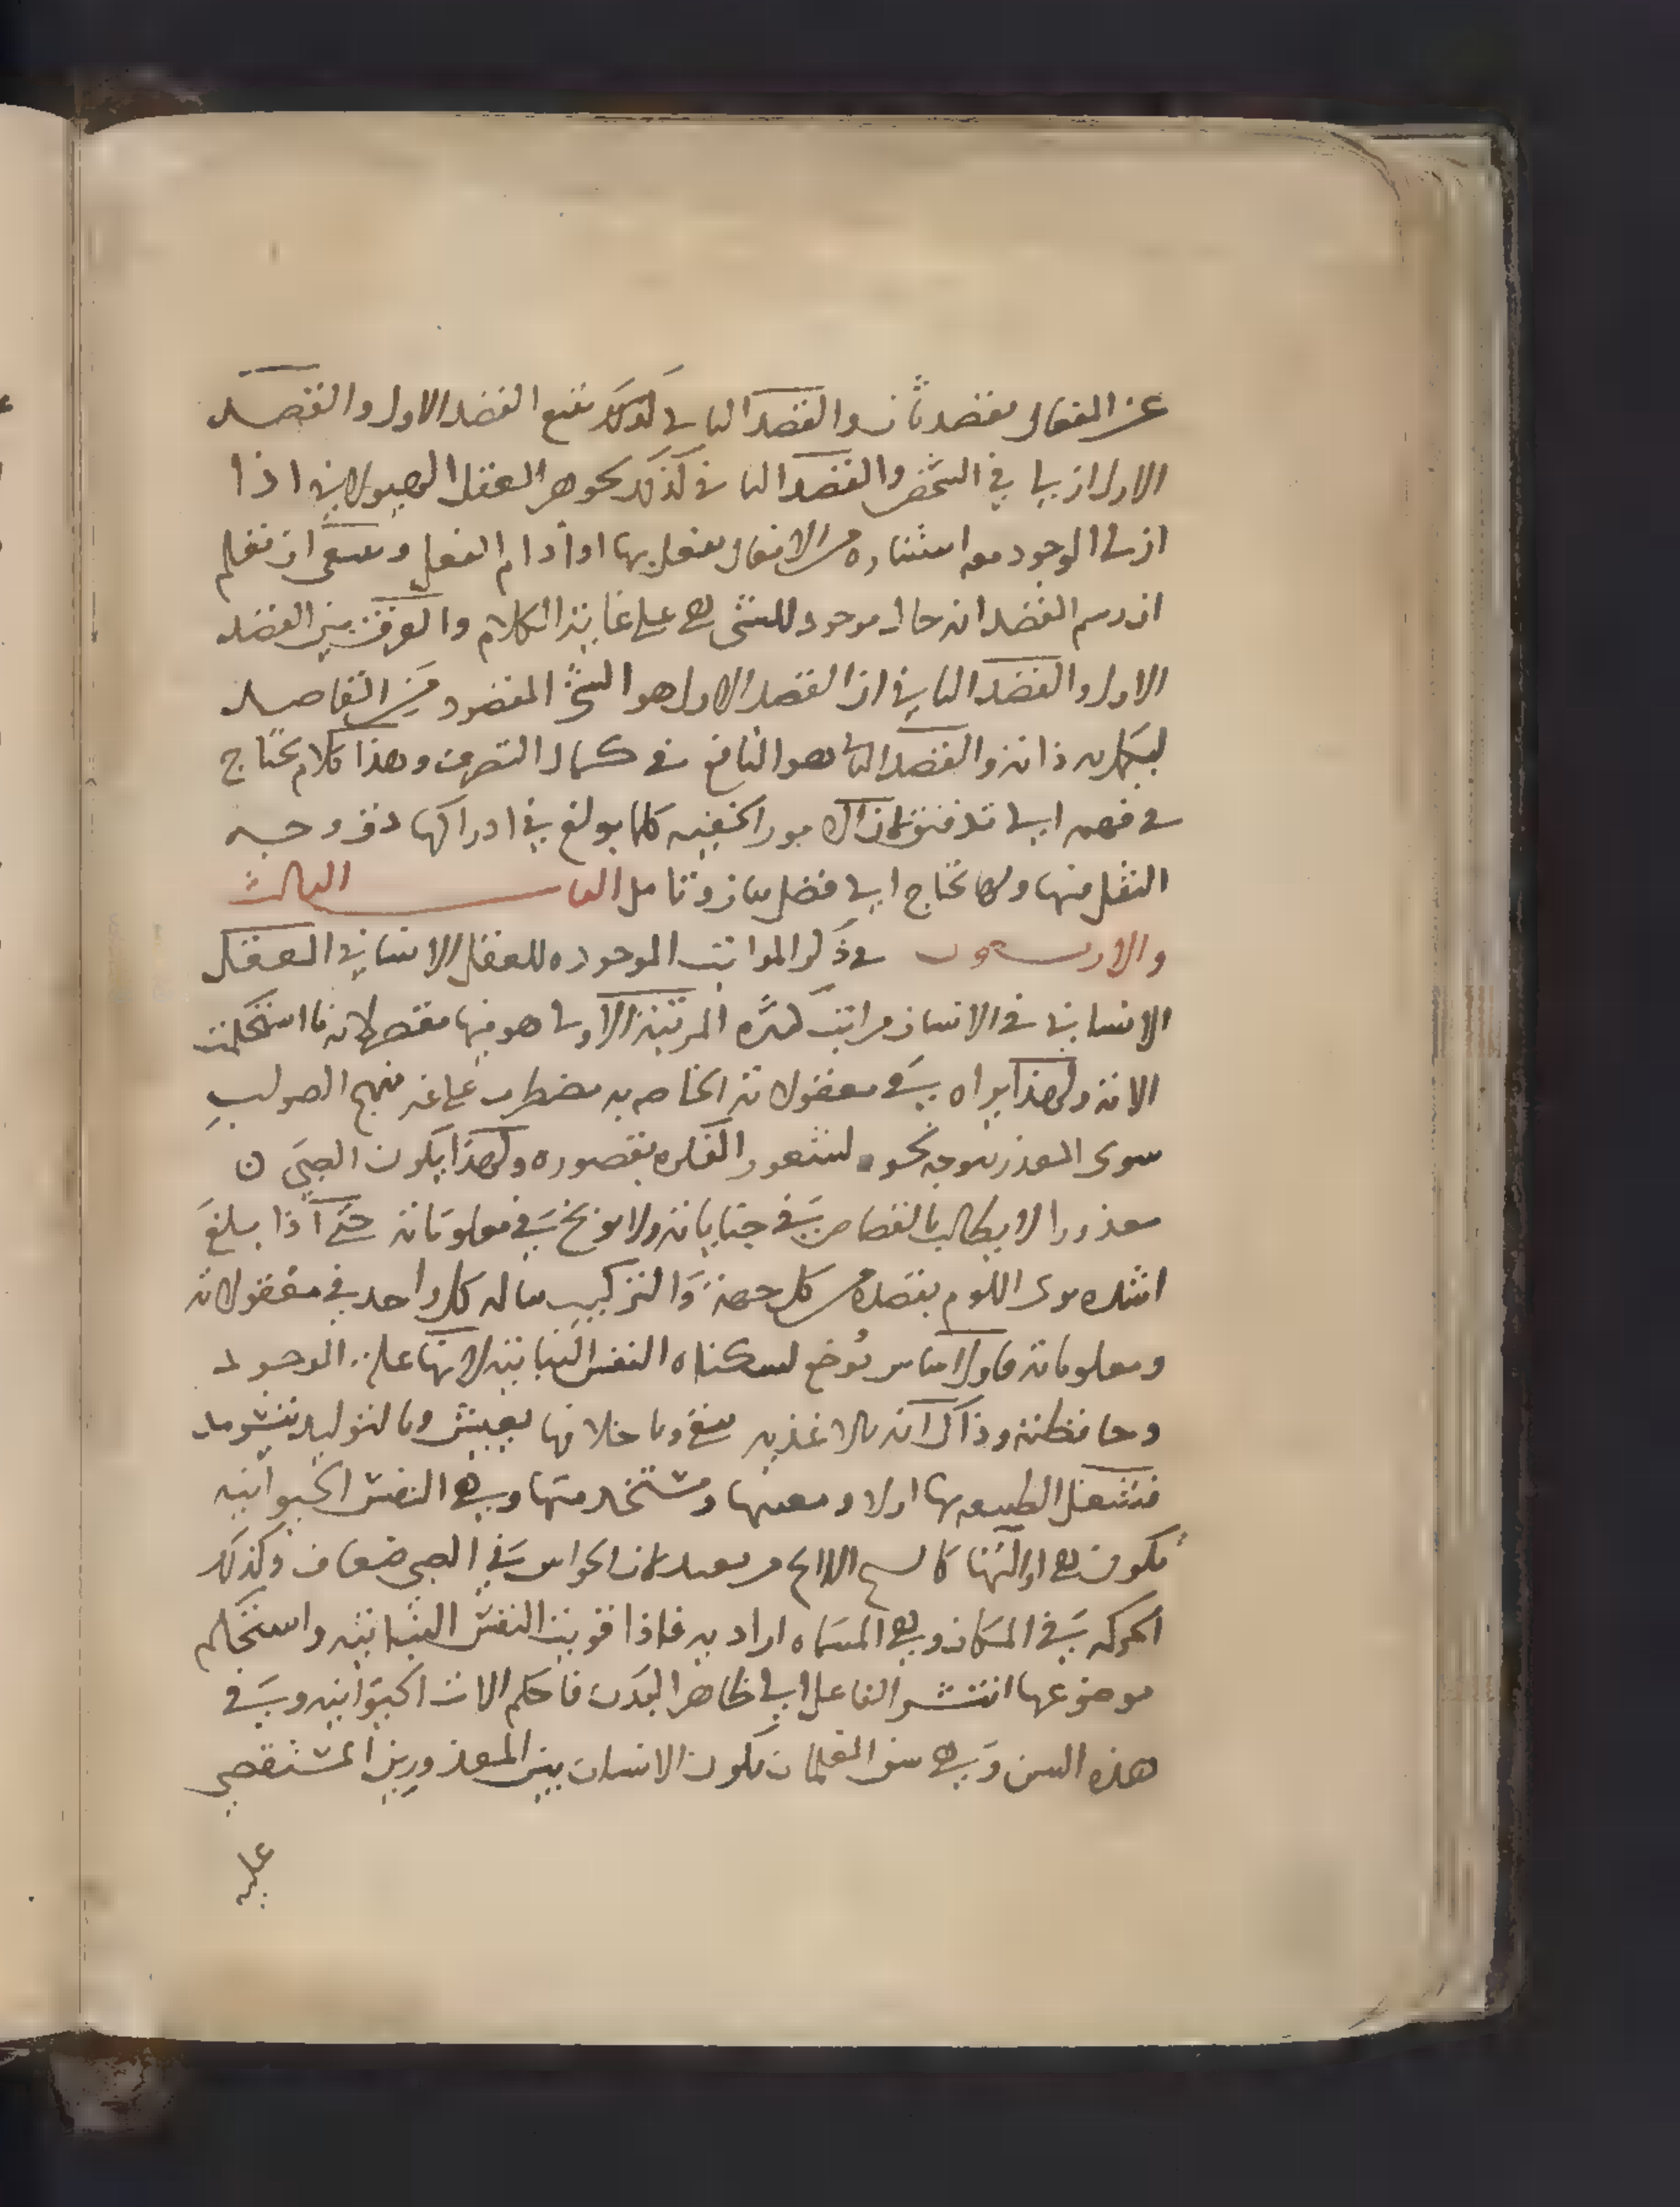 عن الفعال بقصد ثان والقصد الثاني لذلك تتبع القصد الاول والقصد
الاول ازليا في الشخص والقصد الثاني كذلك كجوهر العقل الهيولاني اذا
الوجود معه الافعال يفعل بها اذا دام الفعل وينبغي ان تعلم
ان رسم القصد انه حال موجود للشي هي على غاية الكلام والفرق بين القصد
الاول والقصد الثاني ان القصد الاول هو الشي المقصود من القاصد
ليكمل به ذاته والقصد الثاني هو النافع في كمال التصرف وهذا كلام يحتاج
في فهمه الى تدقيق لان الامور الخفية كلما بولغ في ادراكها دق وجه
النقل منها ولها تحتاج الى فضل بيان وتامل الباب الثالث
والاربعون في ذكر المراتب الموجوده للعقل الانساني العقل
الانساني في الانسان مراتب كثيره المرتبة الاولى هو فيها مقصر لانه ما استحكمت
الاته ولهذا يراه في معقولاته الخاصه به مضطرب على غير منهج الصواب
سوى العذر يتوجه نحوه لشعور الفكره بقصوره ولهذا يكون الصبي ن
معذورا لا يطالب بالقصاص في جناياته ولا يوبخ في معلوماته حتى اذا بلغ
اشده يرى اللوم يقصده من كل جهة والتركيب يناله كل واحد في معقولاته
ومعلوماته فاول اساس يوضع لسكناه النفس النباتية لانها علة الوجود
وحافظته وذاك انه بالاغذيه ينمو وباخلافها يعيش وبالتوليد
فتشغل الطبيعه بها اولا ومعينها ومستخدمتها وهي النفس الحيوانيه
تكون هي اولا من بعيد لان الحواس في الصبي ضعاف وكذلك
الحركه في المكان وهي المسماه اراديه فاذا قويت النفس النباتيه واستحكم
موضوعها انتشر الفاعل الى ظاهر البدن فاحكم الالات الحيوانيه وفي
هذه السن وهي سن الغلمان يكون الانسان بين المعذور وبين المستقصى
عليه